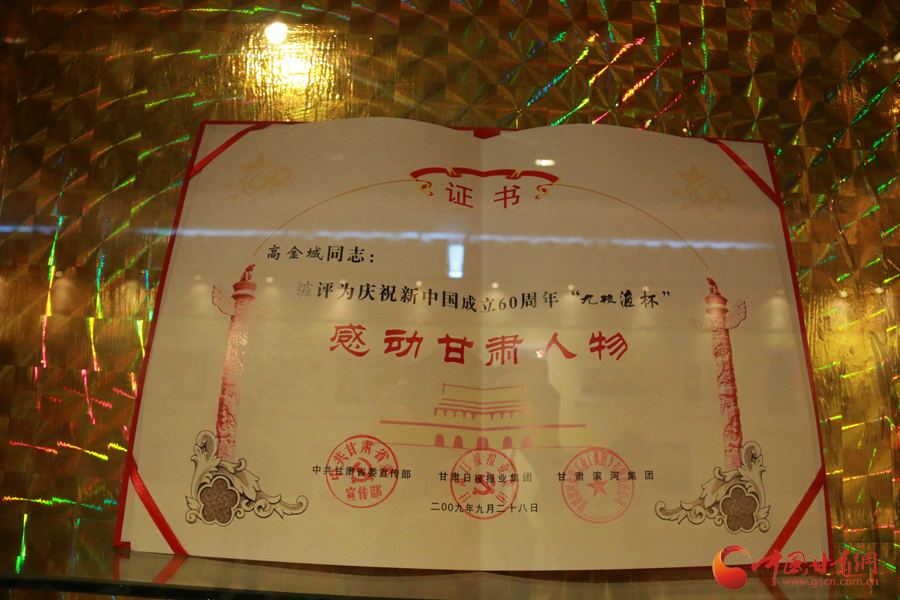 证书
高金城同志：
被评为庆祝新中国成立60周年“九粮液杯”
感动甘肃人物
中共甘肃省委宣传部 甘肃日报报业集团 甘肃滨河集团
二00九年九月二十八日
中国甘肃网
www.gscn.com.cn